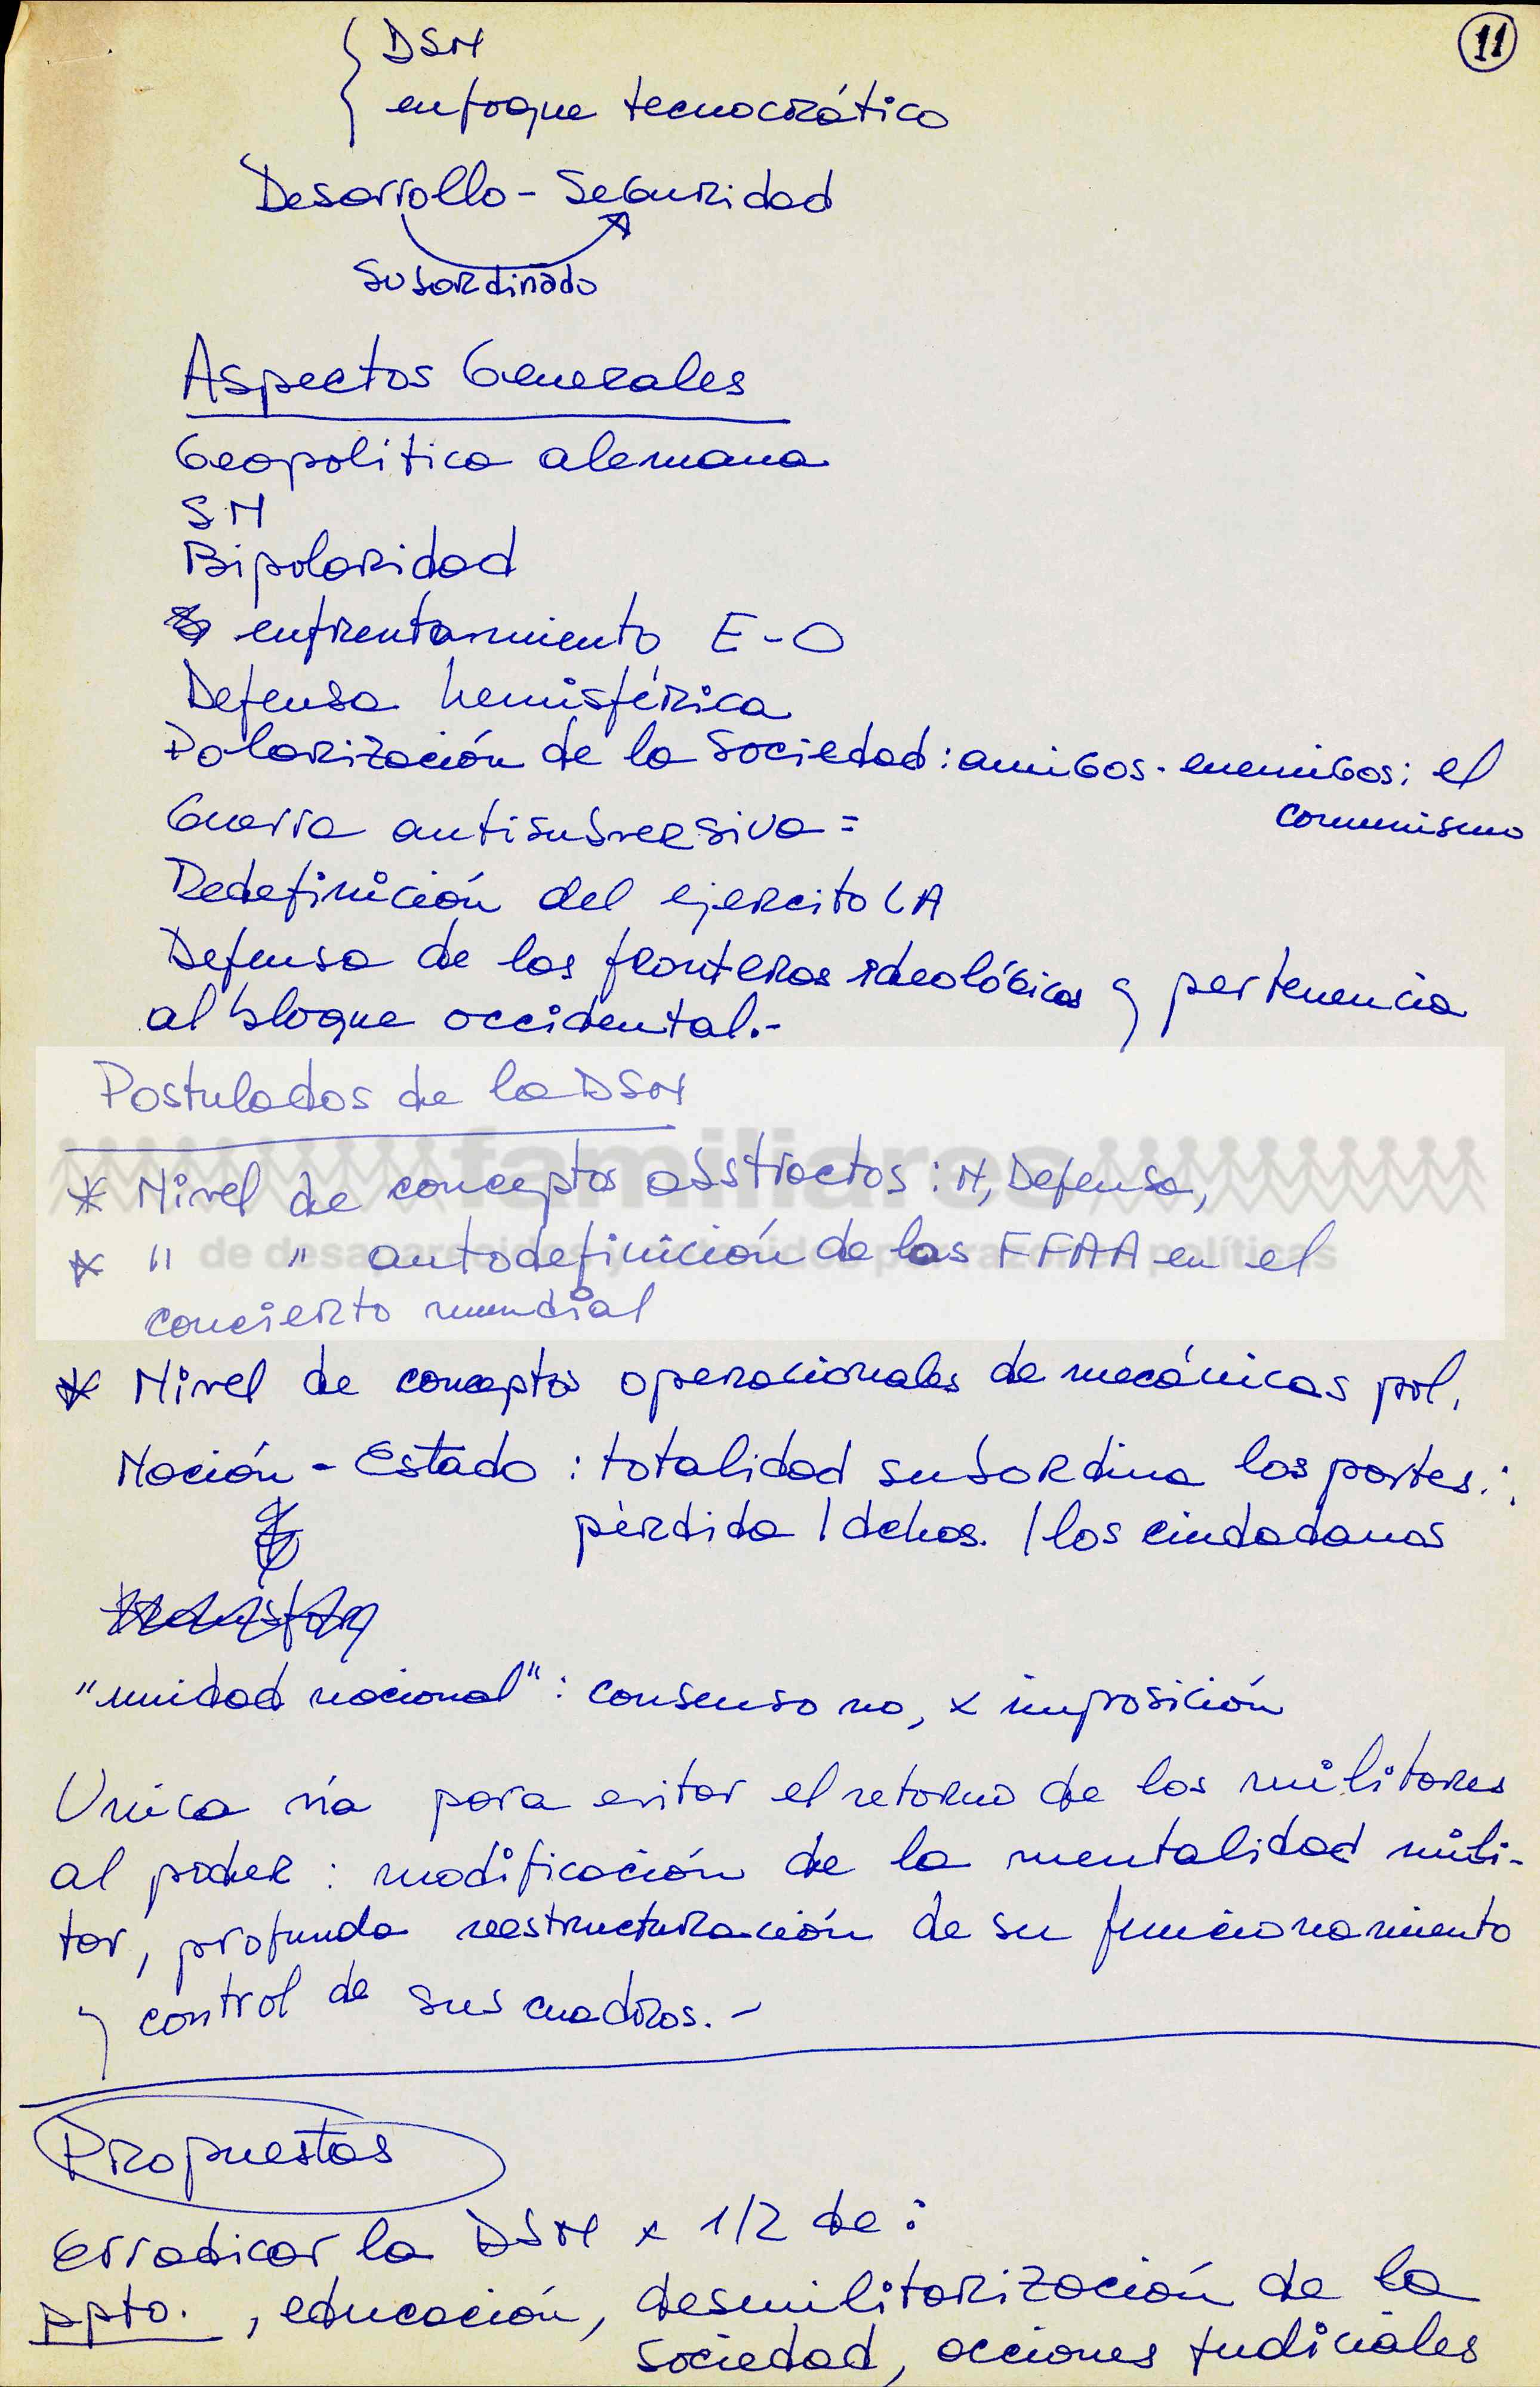 11
DSN
enfoque tecnocrático
Desarrollo - Seguridad
Subordinado
Aspectos Generales
Geopolítica alemana
SN
Bipolaridad
enfrentamiento E-O
Defensa hemisférica
Polarización de la Sociedad: amigos - enemigos: el
comunismo
Guerra antisubversiva =
Redefinición del ejercito LA
Defensa de las fronteras ideológicas y pertenencia
al bloque occidental.-
Postulados de la DSN
familiares
* Nivel de conceptos abstractos: N, Defensa,
de desaparecidos y detenidos por razones políticas
* " " autodefinición de las FFAA en el
concierto mundial
* Nivel de conceptos operacionales de mecánicas pol.
Nación - Estado : totalidad subordina las partes. :
pérdida / dchos. / los ciudadanos
"unidad nacional": consenso no, x imposición
Unica vía para evitar el retorno de los militares
al poder : modificación de la mentalidad mili-
tar, profunda reestructuración de su funcionamiento
y control de sus cuadros. -
Propuestas
Erradicar la DSN x 1/2 de :
ppto. , educación, desmilitarización de la
sociedad, acciones judiciales